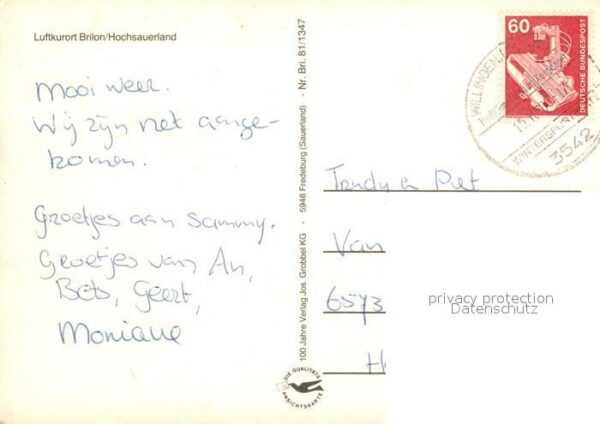 Luftkurort Brilon/Hochsauerland
Mooi weer.
Wij zijn net aange-
komen.
Groetjes aan Sammy.
Groetjes van An,
Bets, Geert,
Moniave
100 Jahre Verlag Jos. Grobbel KG · 5948 Fredeburg (Sauerland) · Nr. Bri. 81/1347
DIE QUALITÄTS
ANSICHTSKARTE
60
DEUTSCHE BUNDESPOST
WILLINGEN
WINTERSPORT
3542
Trudy en Piet
Van
6573
H
privacy protection
Datenschutz